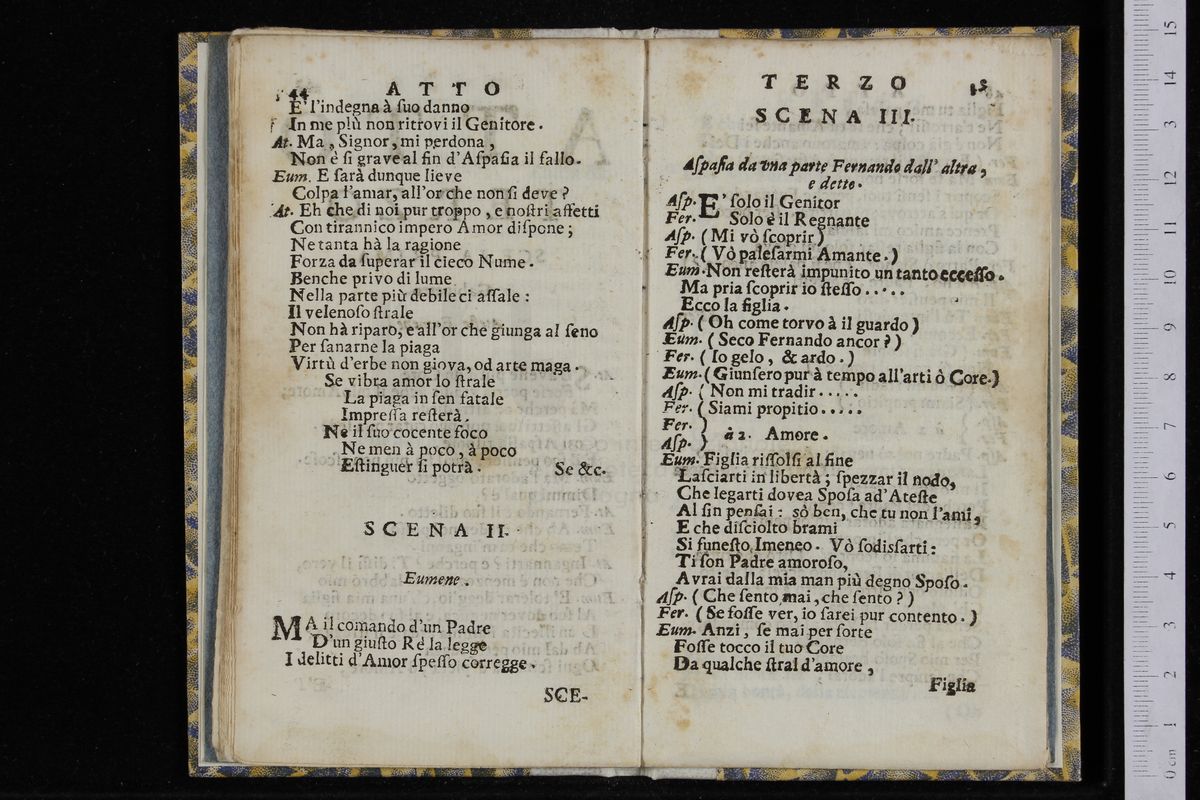 44 ATTO
E' l'indegna à ſuo danno
In me più non ritrovi il Genitore.
At. Ma, Signor, mi perdona,
Non è ſi grave al fin d'Aſpaſia il fallo.
Eum. E ſarà dunque lieve
Colpa l'amar, all'or che non ſi deve?
At. Eh che di noi pur troppo, e noſtri affetti
Con tirannico impero Amor diſpone;
Ne tanta hà la ragione
Forza da ſuperar il cieco Nume.
Benche privo di lume
Nella parte più debile ci aſſale:
Il velenoſo ſtrale
Non hà riparo, e all'or che giunga al ſeno
Per ſanarne la piaga
Virtù d'erbe non giova, od arte maga.
Se vibra amor lo ſtrale
La piaga in ſen fatale
Impreſſa reſterà.
Ne il ſuo cocente foco
Ne men à poco, à poco
Eſtinguer ſi potrà. Se &c.
SCENA II.
Eumene.
MA il comando d'un Padre
D'un giuſto Rè la legge
I delitti d'Amor ſpeſſo corregge.
SCE-
TERZO 45
SCENA III.
Aſpaſia da vna parte Fernando dall' altra,
e detto.
Aſp. E' ſolo il Genitor
Fer. Solo è il Regnante
Aſp. (Mi vò ſcoprir)
Fer. (Vò paleſarmi Amante.)
Eum. Non reſterà impunito un tanto ecceſſo.
Ma pria ſcoprir io ſteſſo.....
Ecco la figlia.
Aſp. (Oh come torvo à il guardo)
Eum. (Seco Fernando ancor?)
Fer. (Io gelo, & ardo.)
Eum. (Giunſero pur à tempo all'arti ò Core.)
Aſp. (Non mi tradir.....
Fer. (Siami propitio.....
Fer. )
à 2. Amore.
Aſp. )
Eum. Figlia riſſolſi al fine
Laſciarti in libertà; ſpezzar il nodo,
Che legarti dovea Spoſa ad'Ateſte
Al fin penſai: sò ben, che tu non l'ami,
E che diſciolto brami
Si funeſto Imeneo. Vò ſodisfarti:
Ti ſon Padre amoroſo,
Avrai dalla mia man più degno Spoſo.
Aſp. (Che ſento mai, che ſento?)
Fer. (Se foſſe ver, io ſarei pur contento.)
Eum. Anzi, ſe mai per ſorte
Foſſe tocco il tuo Core
Da qualche ſtral d'amore,
Figlia
0 cm 1 2 3 4 5 6 7 8 9 10 11 12 3 14 15